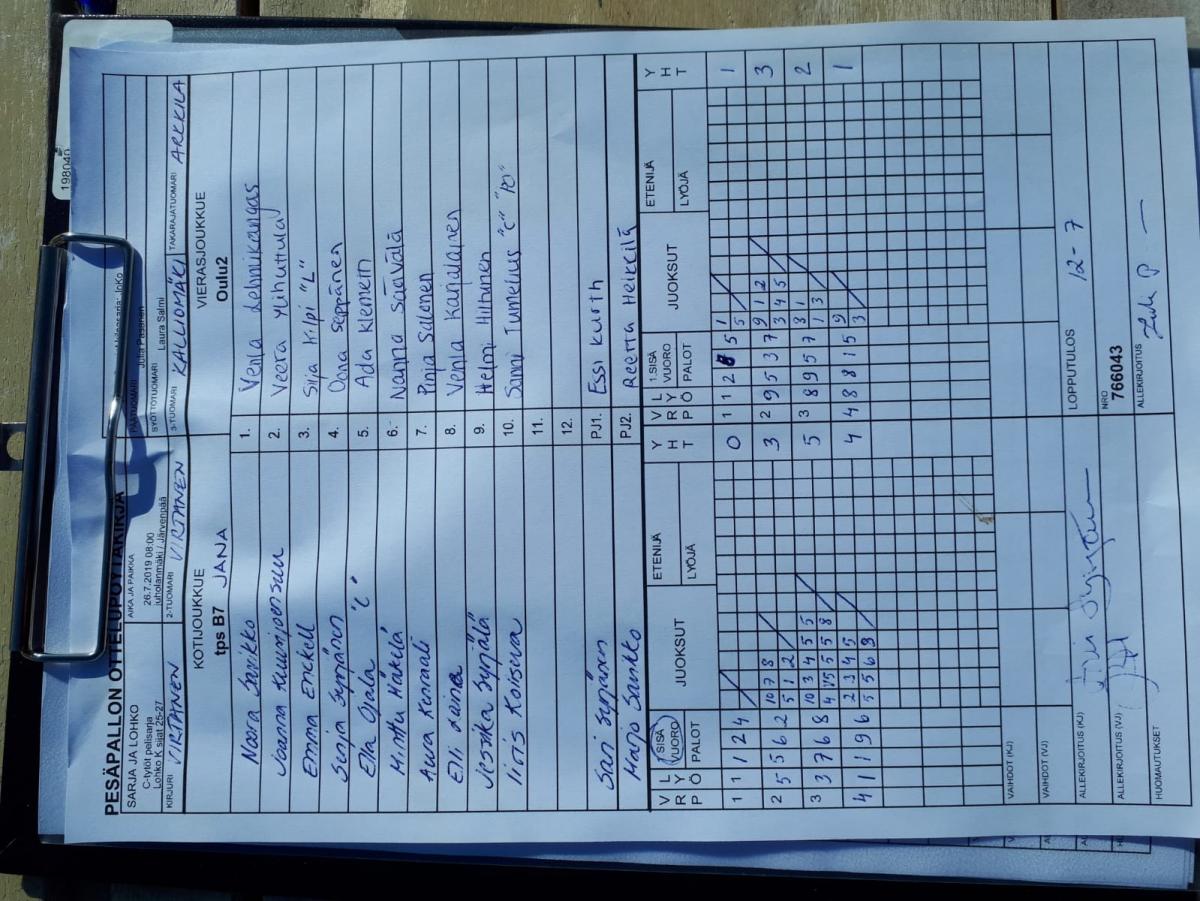 198040
PESÄPALLON OTTELUPÖYTÄKIRJA
SARJA JA LOHKO
C-tytöt pelisarja
Lohko K sijat 25-27
AIKA JA PAIKKA
26.7.2019 08:00
juholanmäki / Järvenpää
Julia Pasanen
SYÖTTÖTUOMARI Laura Salmi
KIRJURI VIRTANEN 2-TUOMARI VIRTANEN 3-TUOMARI KALLIOMÄKI TAKARAJATUOMARI ARKKILA
KOTIJOUKKUE VIERASJOUKKUE
tps B7 JANA Oulu2
Noora Sarikko 1. Venla Lehmikangas
Joanna 2. Veera
Emma Enckell 3. Silja Kilpi "L"
Sonja Syrjänen 4. Oona Seppänen
Ella Ojala "C" 5. Ada Klemetti
Minttu Mäkelä 6. Nanna Säävälä
Aura 7. Pinja Salonen
Elli Laine 8. Venla Karjalainen
Jessika Syrjälä 9. Helmi Hiltunen
Iiris Koisuva 10. Sumi Tumelius "C"
11.
12.
Sari Syrjänen PJ1. Essi Kurth
Marjo Sarikko PJ2. Reetta Heikkilä
V R P L Y Ö 1.SISÄ VUORO PALOT JUOKSUT ETENIJÄ LYÖJÄ Y H T V R P L Y Ö 1.SISÄ VUORO PALOT JUOKSUT ETENIJÄ LYÖJÄ Y H T
1 1 1 2 4 0 1 1 2 8 5 1 5 1
2 5 5 6 2 10 7 8 5 1 2 3 2 9 5 3 7 9 1 2 3 4 5 3
3 3 7 6 8 10 3 4 5 5 4 15 5 5 8 5 3 8 9 5 7 3 1 1 3 2
4 1 1 9 6 2 3 4 5 5 5 6 3 4 4 8 8 1 5 9 3 1
VAIHDOT (KJ)
VAIHDOT (VJ)
ALLEKIRJOITUS (KJ) LOPPUTULOS 12-7
ALLEKIRJOITUS (VJ) NRO 766043
HUOMAUTUKSET ALLEKIRJOITUS